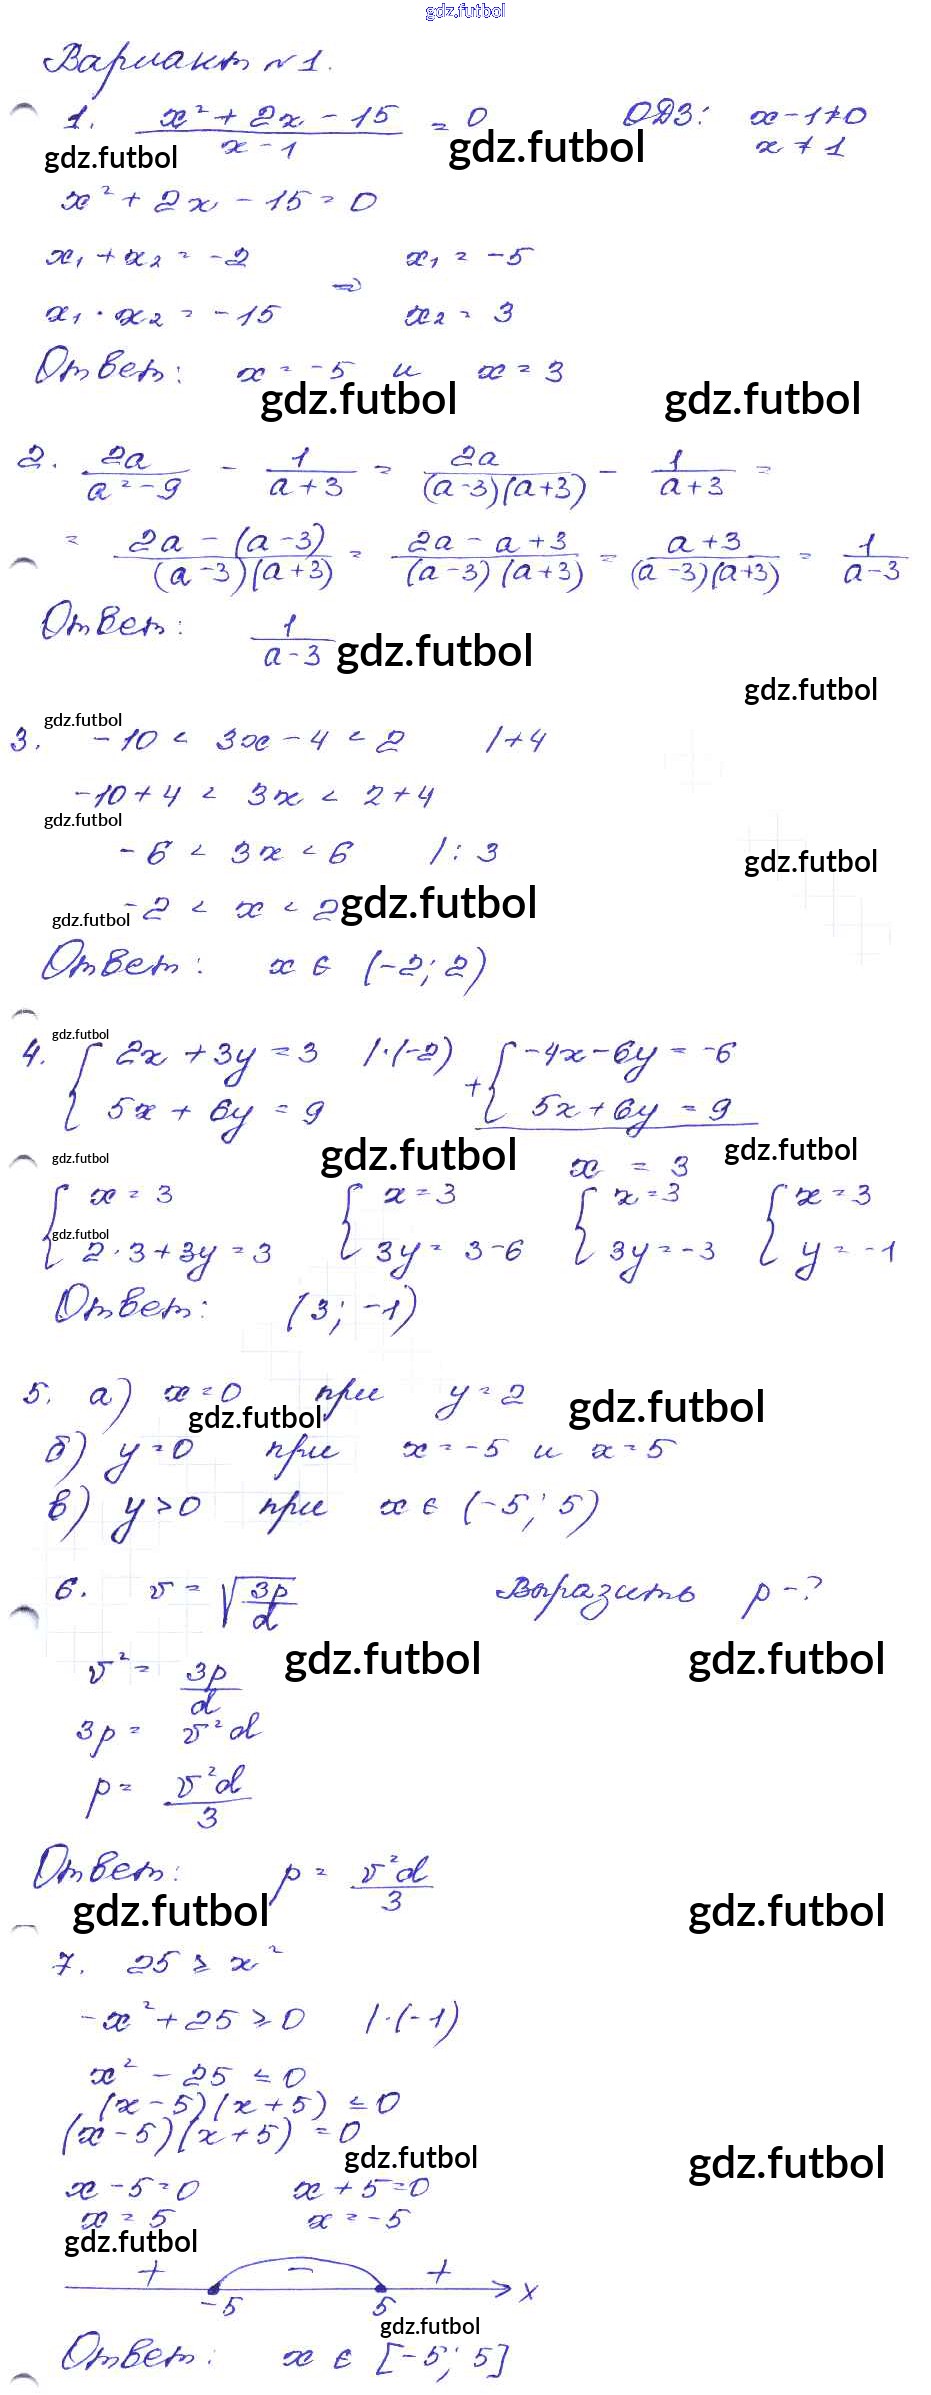 gdz.futbol
Вариант №1.
1. (x² + 2x - 15)/(x - 1) = 0 ОДЗ: x - 1 ≠ 0
gdz.futbol gdz.futbol x ≠ 1
x² + 2x - 15 = 0
x₁ + x₂ = -2 x₁ = -5
⇒
x₁ · x₂ = -15 x₂ = 3
Ответ: x = -5 и x = 3
gdz.futbol gdz.futbol
2. 2a/(a² - 9) - 1/(a + 3) = 2a/((a-3)(a+3)) - 1/(a+3) =
= (2a - (a-3))/((a-3)(a+3)) = (2a - a + 3)/((a-3)(a+3)) = (a+3)/((a-3)(a+3)) = 1/(a-3)
Ответ: 1/(a-3) gdz.futbol
gdz.futbol
gdz.futbol
3. -10 < 3x - 4 < 2 | +4
-10 + 4 < 3x < 2 + 4
gdz.futbol
-6 < 3x < 6 | : 3
gdz.futbol
-2 < x < 2 gdz.futbol
gdz.futbol
Ответ: x ∈ (-2; 2)
gdz.futbol
4. { 2x + 3y = 3 | ·(-2) + { -4x - 6y = -6
5x + 6y = 9 5x + 6y = 9
gdz.futbol gdz.futbol x = 3 gdz.futbol
{ x = 3 { x = 3 { x = 3 { x = 3
gdz.futbol
2 · 3 + 3y = 3 3y = 3 - 6 3y = -3 y = -1
Ответ: (3; -1)
5. а) x = 0 при y = 2 gdz.futbol
gdz.futbol
б) y = 0 при x = -5 и x = 5
в) y > 0 при x ∈ (-5; 5)
6. v = √(3p/d) Выразить p - ?
gdz.futbol gdz.futbol
v² = 3p/d
3p = v²d
p = v²d/3
Ответ: p = v²d/3
gdz.futbol gdz.futbol
7. 25 ≥ x²
-x² + 25 ≥ 0 | ·(-1)
x² - 25 ≤ 0
(x - 5)(x + 5) ≤ 0
(x - 5)(x + 5) = 0
gdz.futbol gdz.futbol
x - 5 = 0 x + 5 = 0
x = 5 x = -5
gdz.futbol
+ - +
-5 5 x
gdz.futbol
Ответ: x ∈ [-5; 5]